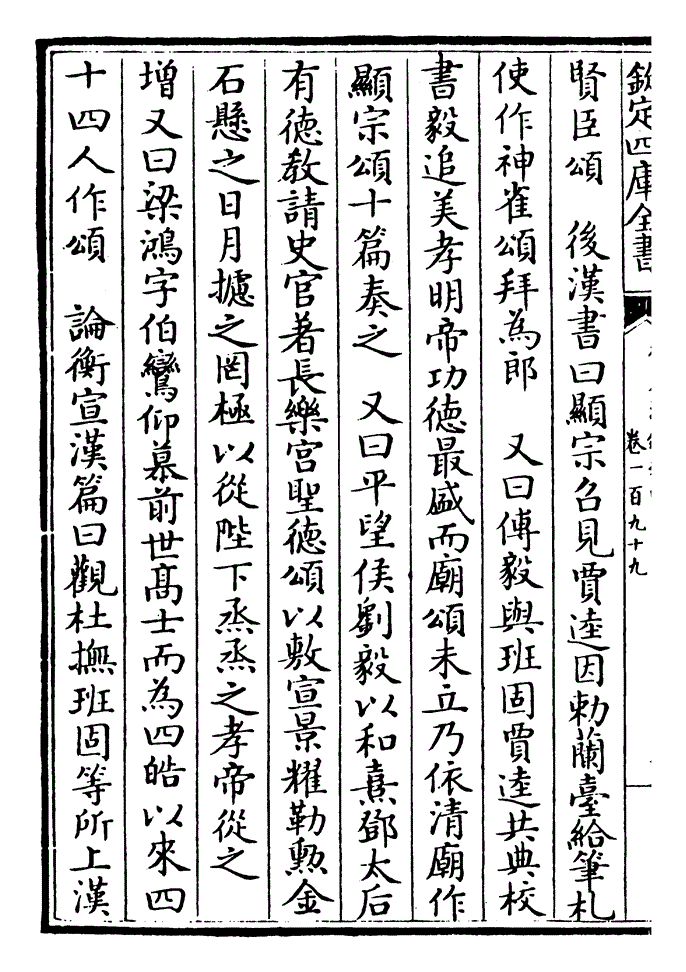 欽定四庫全書
卷一百九十九
賢臣頌　後漢書曰顯宗召見賈逵因勅蘭臺給筆札
使作神雀頌拜為郎　又曰傅毅與班固賈逵共典校
書毅追美孝明帝功徳最盛而廟頌未立乃依清廟作
顯宗頌十篇奏之　又曰平望侯劉毅以和熹鄧太后
有徳教請史官著長樂宫聖徳頌以敷宣景耀勒勲金
石懸之日月攄之罔極以從陛下烝烝之孝帝從之
增又曰梁鴻字伯鸞仰慕前世髙士而為四皓以來四
十四人作頌　論衡宣漢篇曰觀杜撫班固等所上漢